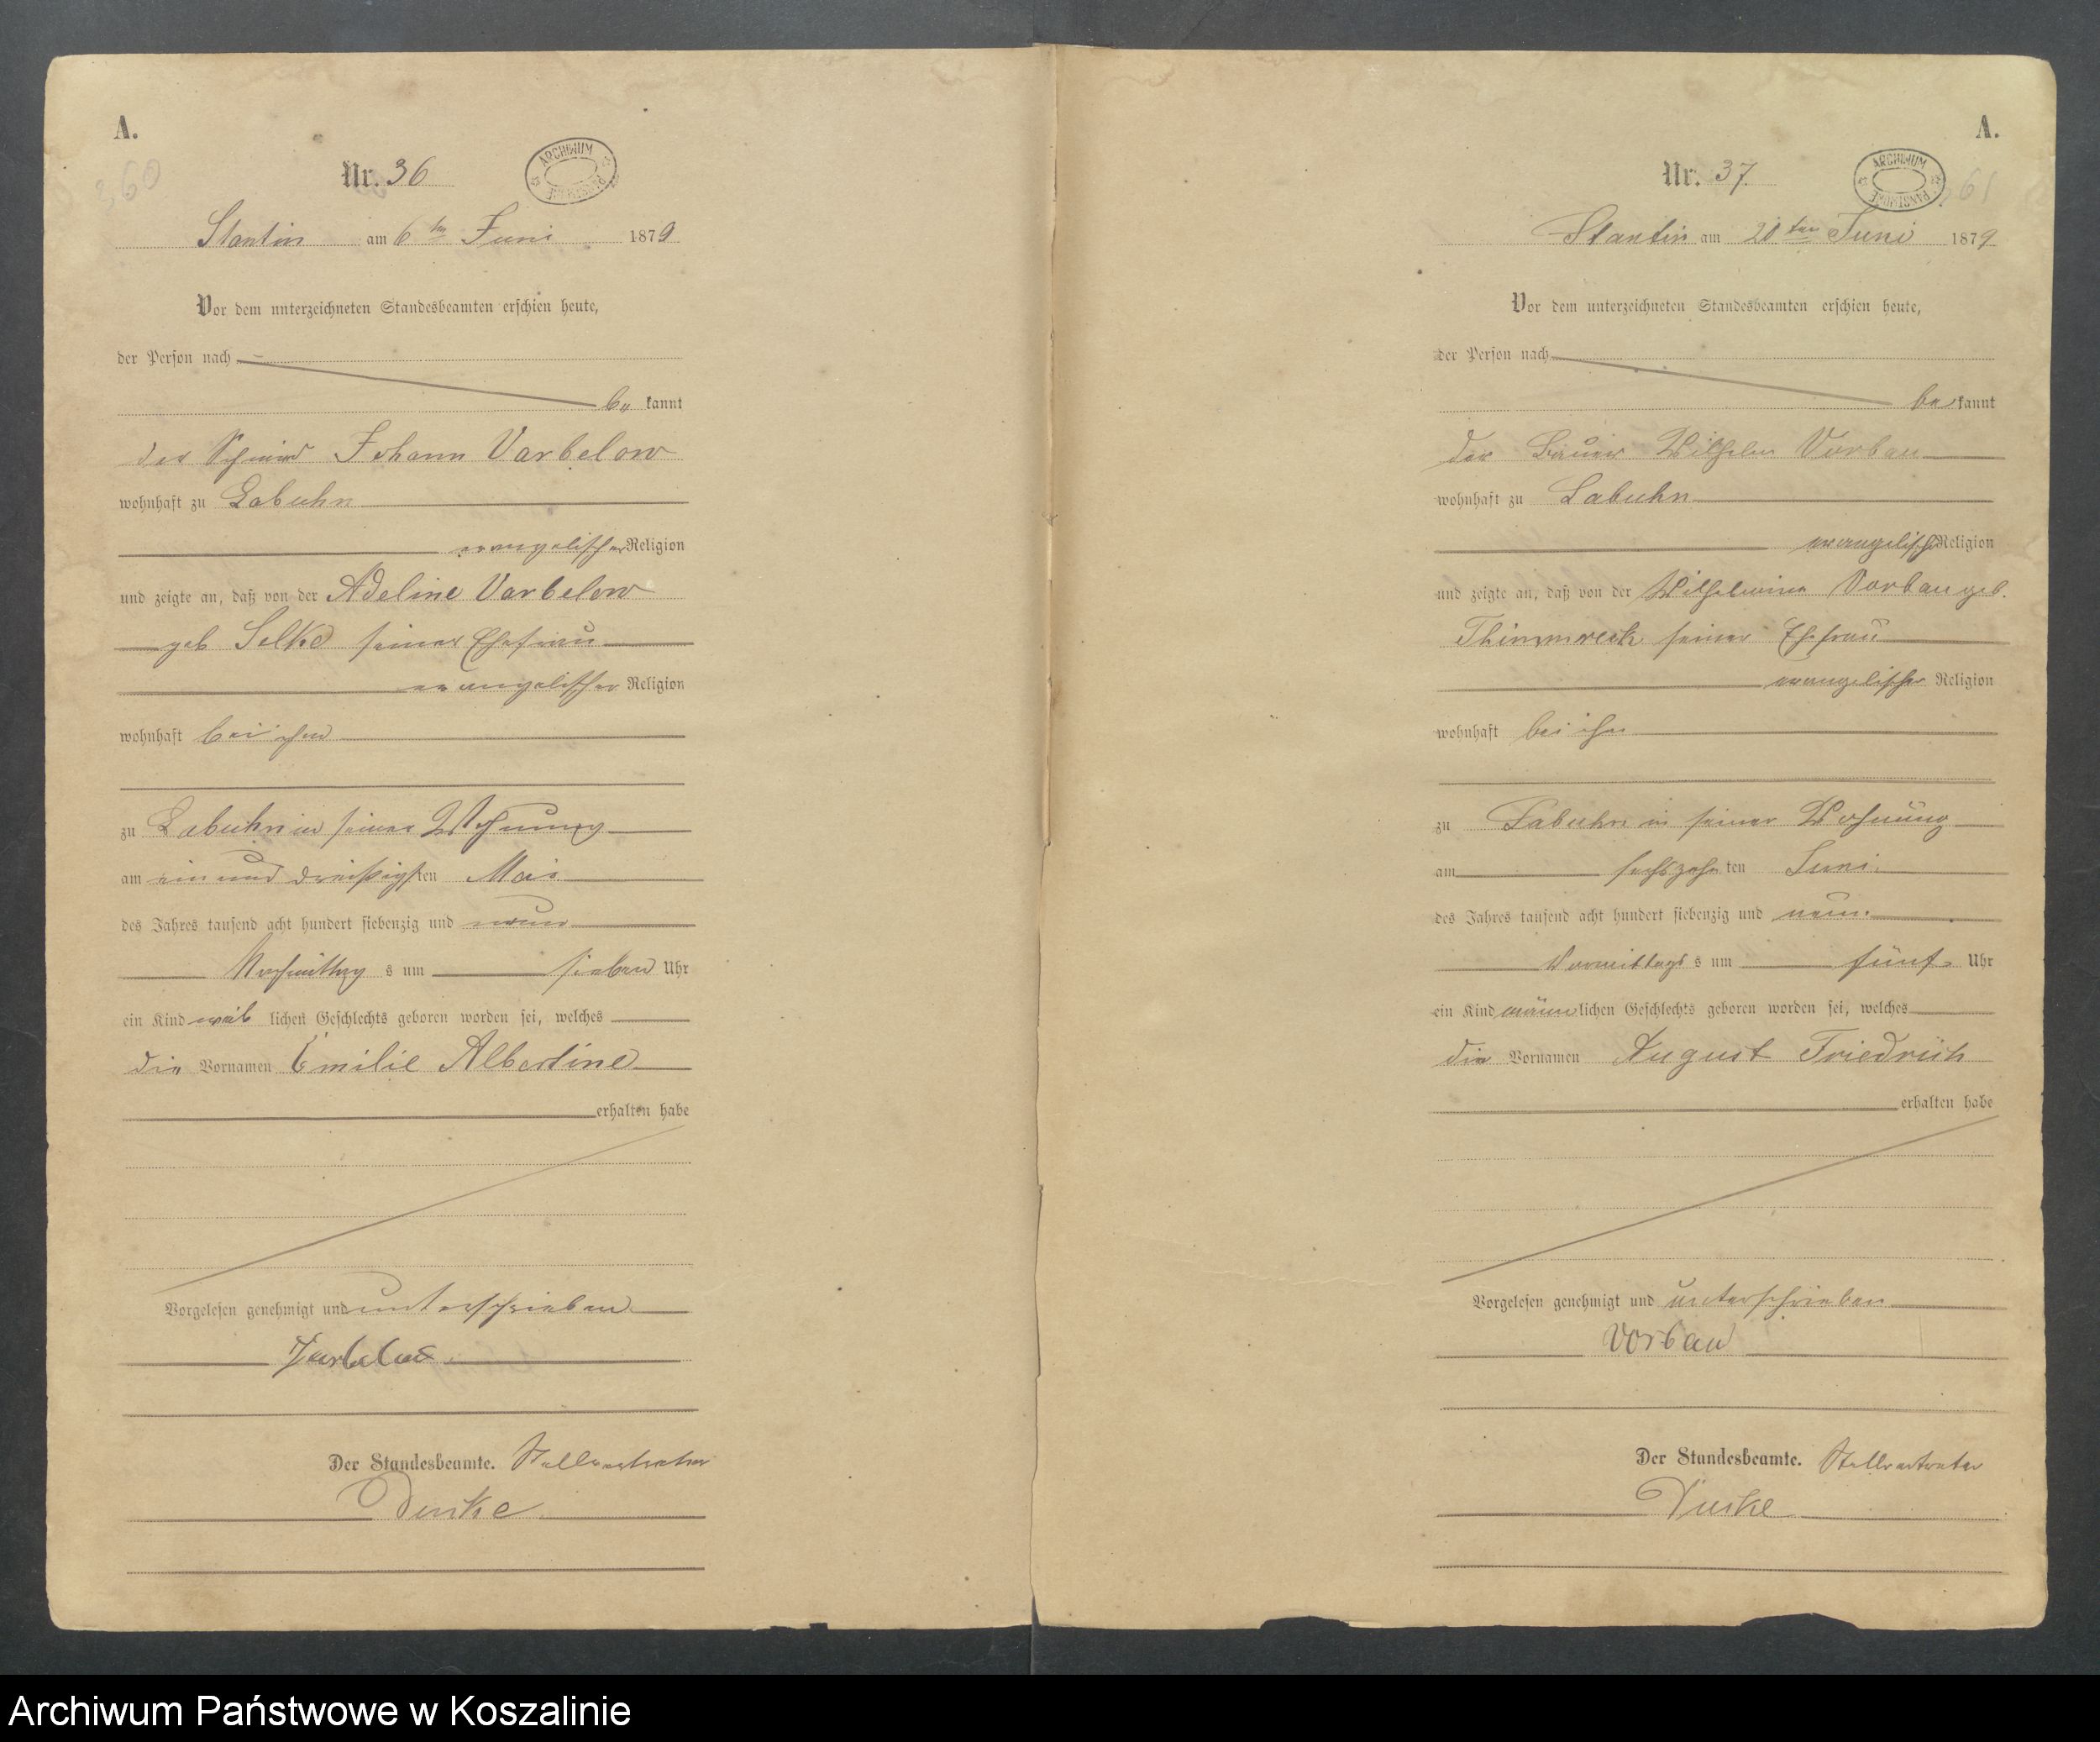 A.
360
Nr. 36
ARCHIWUM
Stantin am 6ten Juni 1879
Vor dem unterzeichneten Standesbeamten erschien heute,
der Person nach
be kannt
der Schmied Johann Varbelow
wohnhaft zu Labuhn
evangelischer Religion
und zeigte an, daß von der Adeline Varbelow
geb Selke seiner Ehefrau
evangelischer Religion
wohnhaft bei ihm
zu Labuhn in seiner Wohnung
am ein und dreißigsten Mai
des Jahres tausend acht hundert siebenzig und neun
Nachmittag s um sieben Uhr
ein Kind weib lichen Geschlechts geboren worden sei, welches
die Vornamen Emilie Albertine
erhalten habe
Vorgelesen genehmigt und unterschrieben
Varbelow
Der Standesbeamte. Stellvertreter
A.
Nr. 37.
ARCHIWUM PAŃSTWOWE
361
Stantin am 20ten Juni 1879
Vor dem unterzeichneten Standesbeamten erschien heute,
der Person nach
be kannt
der Bauer Wilhelm Vorbau
wohnhaft zu Labuhn
evangelischer Religion
und zeigte an, daß von der Wilhelmine Vorbau geb.
Thimmreck seiner Ehefrau
evangelischer Religion
wohnhaft bei ihm
zu Labuhn in seiner Wohnung
am sechszehn ten Juni
des Jahres tausend acht hundert siebenzig und neun.
Vormittags s um fünf Uhr
ein Kind männ lichen Geschlechts geboren worden sei, welches
die Vornamen August Friedrich
erhalten habe
Vorgelesen genehmigt und unterschrieben
Vorbau
Der Standesbeamte. Stellvertreter
Archiwum Państwowe w Koszalinie